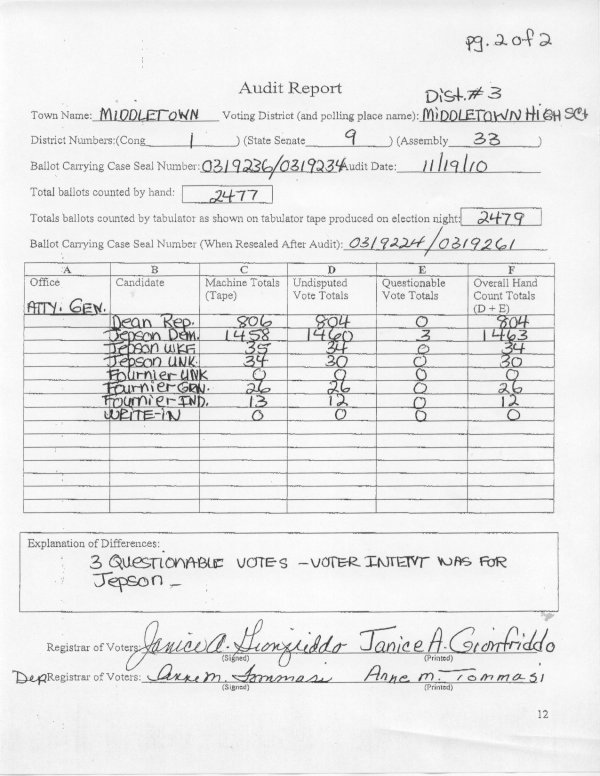 pg. 2 of 2
Audit Report
Dist. # 3
Town Name: MIDDLETOWN Voting District (and polling place name): MIDDLETOWN HIGH SCH
District Numbers:(Cong 1 ) (State Senate 9 ) (Assembly 33 )
Ballot Carrying Case Seal Number: 0319236/0319234 Audit Date: 11/19/10
Total ballots counted by hand: 2477
Totals ballots counted by tabulator as shown on tabulator tape produced on election night: 2479
Ballot Carrying Case Seal Number (When Resealed After Audit): 0319224/0319261
A B C D E F
Office Candidate Machine Totals (Tape) Undisputed Vote Totals Questionable Vote Totals Overall Hand Count Totals (D + E)
ATTY. GEN.
Dean Rep. 806 804 0 804
Jepson Dem. 1458 1460 3 1463
Jepson WKF 35 34 0 34
Jepson UNK. 34 30 0 30
Fournier UNK 0 0 0 0
Fournier GRN. 26 26 0 26
Fournier IND. 13 12 0 12
WRITE-IN 0 0 0 0
Explanation of Differences:
3 QUESTIONABLE VOTES - VOTER INTENT WAS FOR
Jepson -
Registrar of Voters: Janice A. Gionfriddo Janice A. Gionfriddo
(Signed) (Printed)
Dep Registrar of Voters: Anne M. Tommasi Anne M. Tommasi
(Signed) (Printed)
12